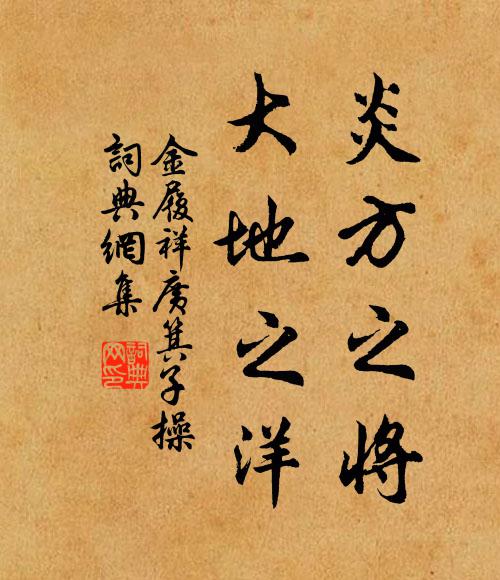 炎方之將
大地之洋
金履祥廣箕子操
詞典網集
詞典網印